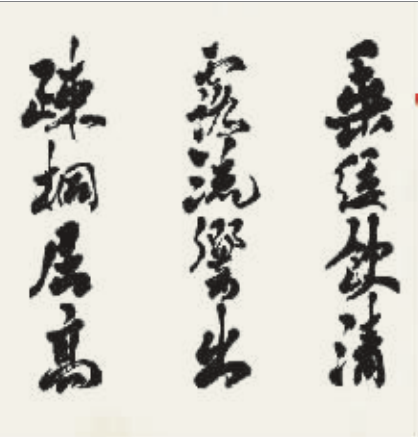 垂緌飲清
露流響出
疎桐居高